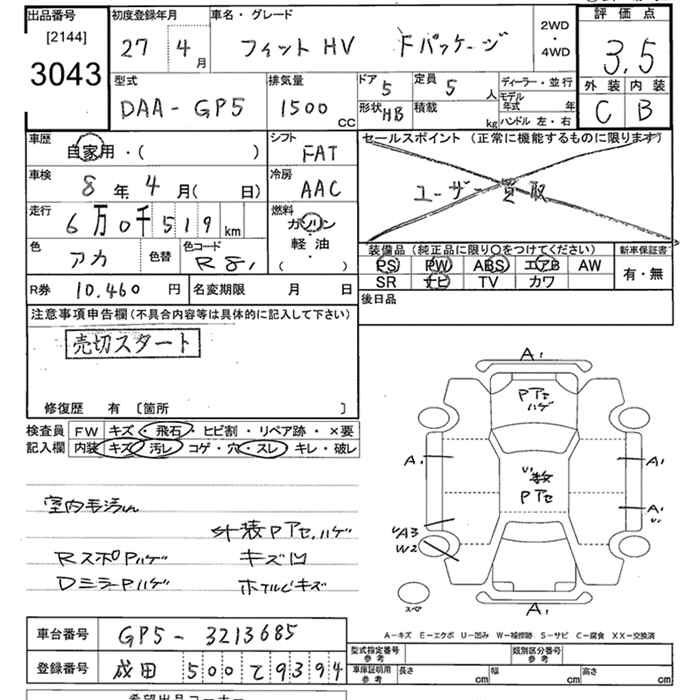 出品番号 初度登録年月 車名・グレード 2WD・4WD 評価点
[2144]
3043 27 4月 フィット HV Fパッケージ 3.5
型式 排気量 ドア 5 定員 5人 ディーラー・並行 外装 内装
DAA-GP5 1500 CC 形状 HB 積載 kg モデル年式 年 C B
ハンドル 左・右
車歴 自家用・( ) シフト FAT セールスポイント (正常に機能するものに限ります)
車検 8年 4月( 日) 冷房 AAC ユーザー買取
走行 6万0千519km 燃料 ガソリン
軽・油
( ・ )
色 アカ 色替 色コード R81 装備品(純品に限り○をつけてください) 新車保証書
PS PW ABS エアB AW 有・無
SR ナビ TV カワ
R券 10.460円 名変期限 月 日 後日品
注意事項申告欄(不具合内容等は具体的に記入して下さい)
売切スタート
修復歴 有 〔箇所 〕
検査員 FW キズ・飛石・ヒビ割・リペア跡・×要
記入欄 内装 キズ・汚レ・コゲ・穴・スレ・キレ・破レ
室内毛汚れ
外装Pアセハゲ
RスポPハゲ キズ凹
DミラーPハゲ ホイルCキズ
A1
Pアセ
ハゲ
A1 A1
U1 数
Pアセ
A1
U1
UA3
W2
スペア A1
A-キズ E-エクボ U-凹み W-補修跡 S-サビ C-腐食 XX-交換済
車台番号 GP5-3213685 型式指定番号 参考 類別区分番号 参考
登録番号 成田 500 て 9394 車庫証明用 参考 長さ cm 幅 cm 高さ cm
希望出品コーナー